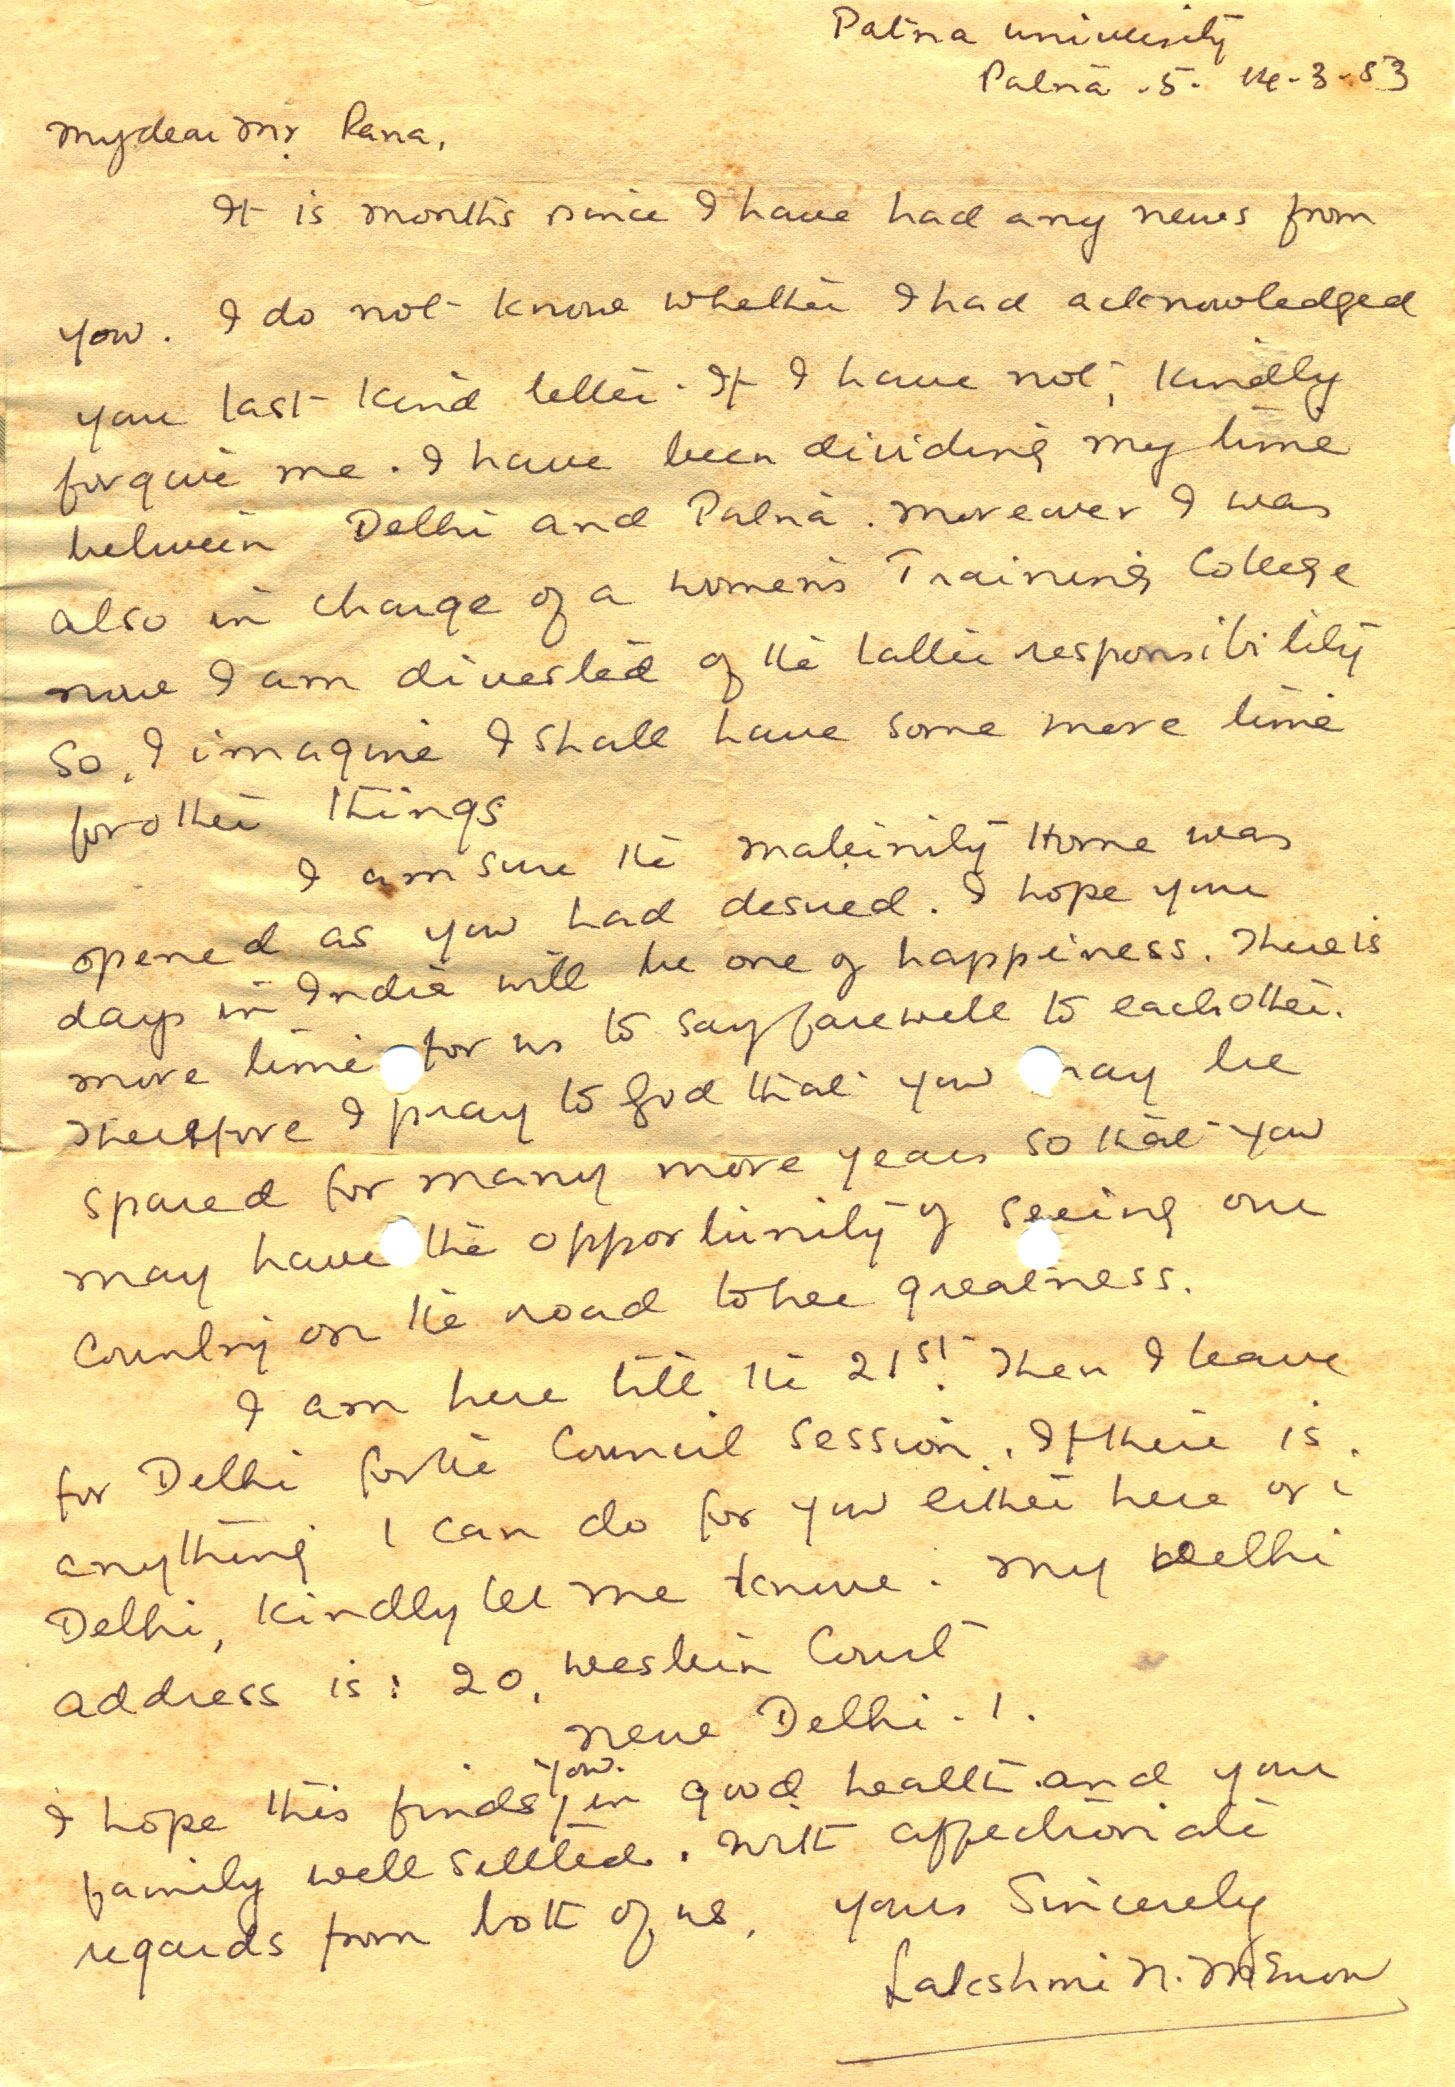 Patna University
Patna - 5. 14-3-53
My dear Mr. Rana,
It is months since I have had any news from
you. I do not know whether I had acknowledged
your last kind letter. If I have not, kindly
forgive me. I have been dividing my time
between Delhi and Patna. Moreover I was
also in charge of a women's Training College
now I am divested of the latter responsibility
So, I imagine I shall have some more time
for other things
I am sure the maternity Home was
opened as you had desired. I hope your
days in India will be one of happiness. There is
more time for us to say farewell to each other.
Therefore I pray to God that you may be
spared for many more years so that you
may have the opportunity of seeing our
Country on the road to her greatness.
I am here till the 21st. Then I leave
for Delhi for the Council Session. If there is
anything I can do for you either here or i
Delhi, kindly let me know. My Delhi
address is: 20, Western Court
New Delhi - 1.
I hope this finds you in good health and your
family well settled. With affectionate
regards from both of us, yours Sincerely
Lakshmi N. Menon